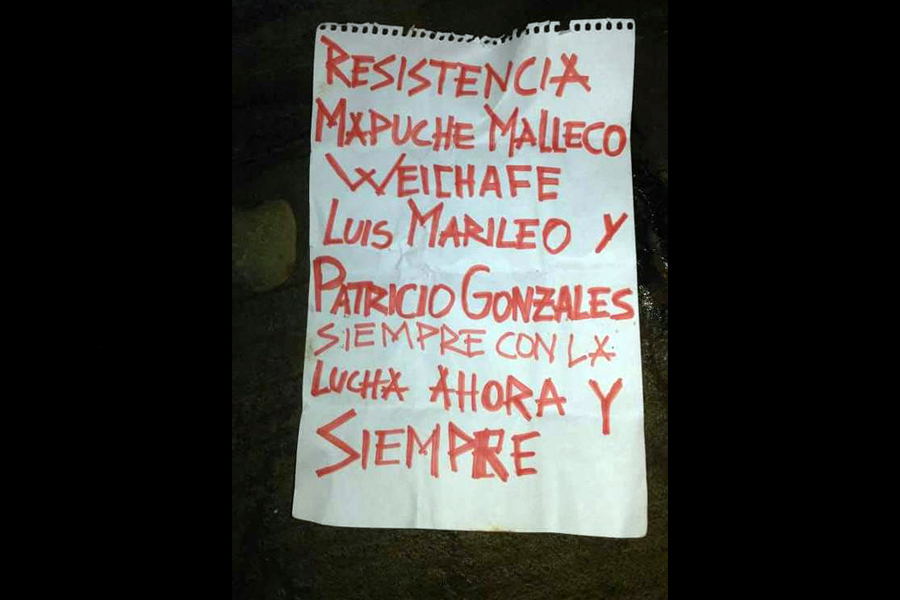 RESISTENCIA
MAPUCHE MALLECO
WEICHAFE
LUIS MARILEO Y
PATRICIO GONZALES
SIEMPRE CON LA
LUCHA AHORA Y
SIEMPRE